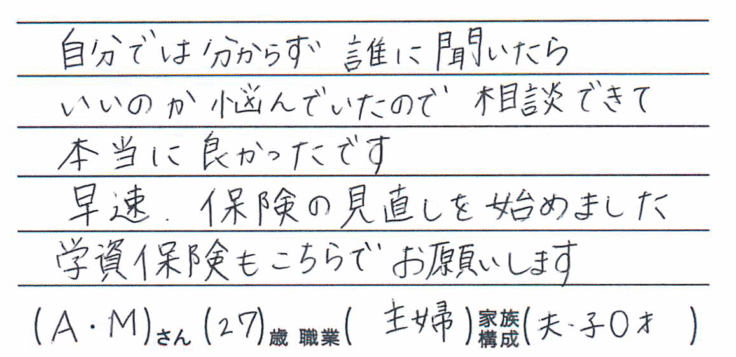 自分では分からず 誰に聞いたら
いいのか悩んでいたので 相談できて
本当に良かったです
早速、保険の見直しを始めました
学資保険もこちらでお願いします
(A・M)さん(27)歳 職業( 主婦 )家族構成(夫・子0才 )